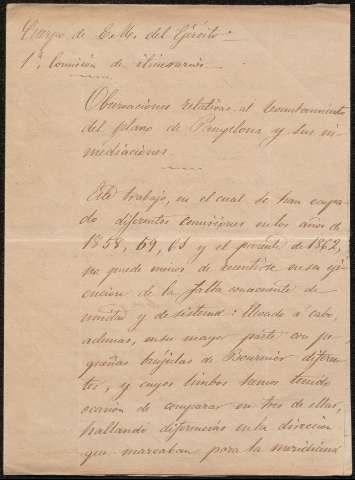 Cuerpo de E. M. del Ejército.
1ª Comisión de itinerarios
Observaciones relativas al levantamiento
del plano de Pamplona y sus in-
mediaciones.
Este trabajo, en el cual se han ocupa-
do diferentes comisiones en los años de
1858, 59, 61 y el presente de 1862,
no puede menos de resentirse en su eje-
cucion de la falta consecuente de
unidad y de sistema: llevado a cabo,
ademas, en su mayor parte con pe-
queñas brújulas de Bournier diferen-
tes, y cuyos limbos hemos tenido
ocasion de comparar en tres de ellas,
hallando diferencias en la direccion
que marcaban para la meridiana